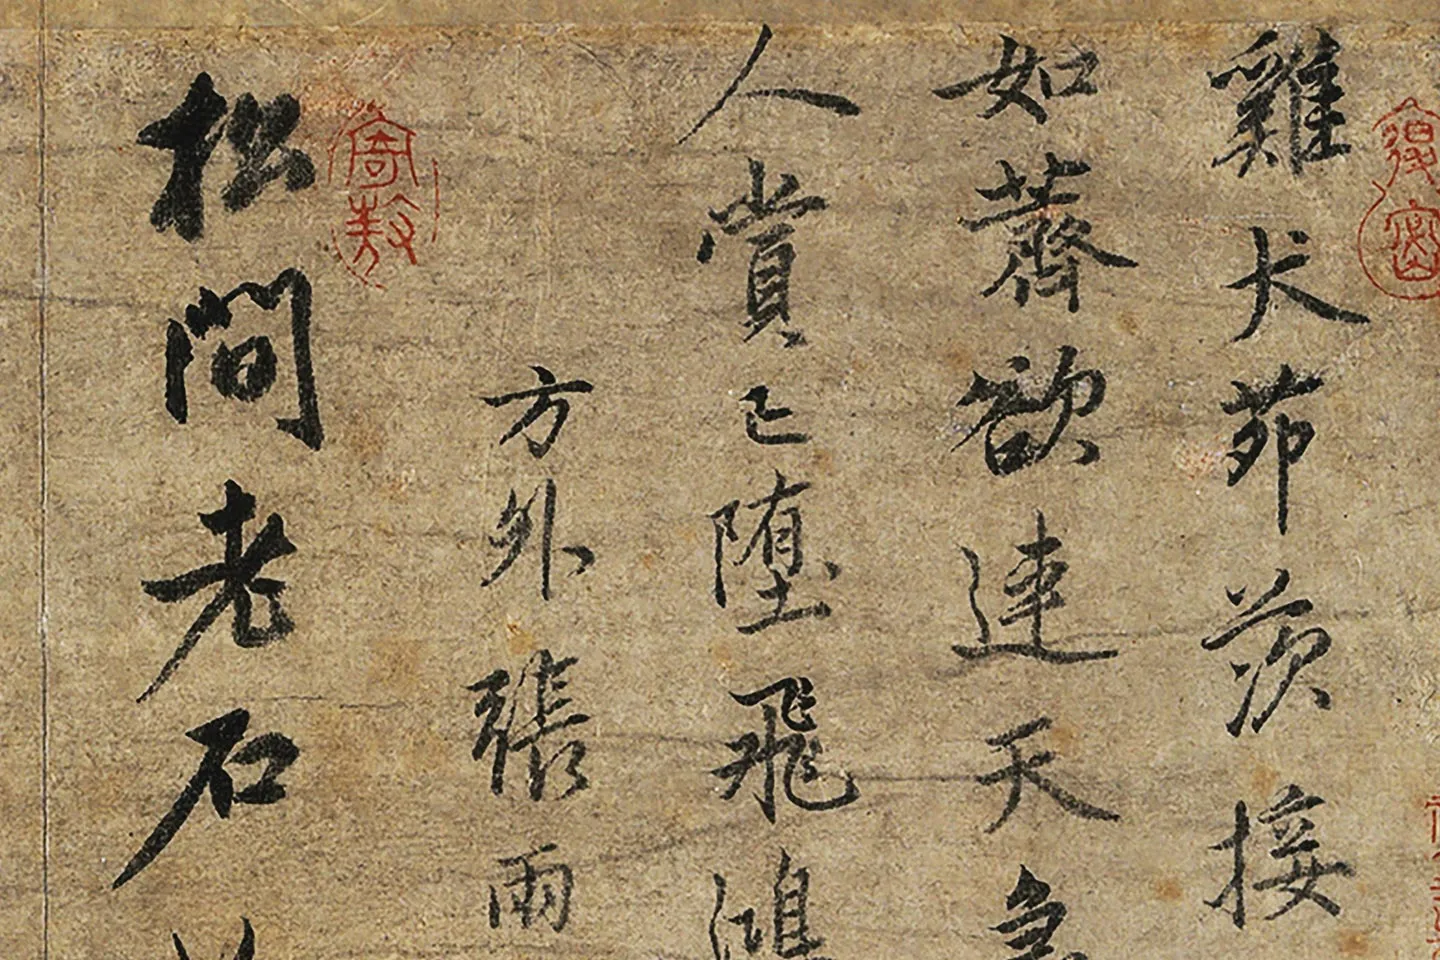 雞犬茆茨接
如薺欲連天急
人賞已堕飛鴻
方外張雨
松間老石